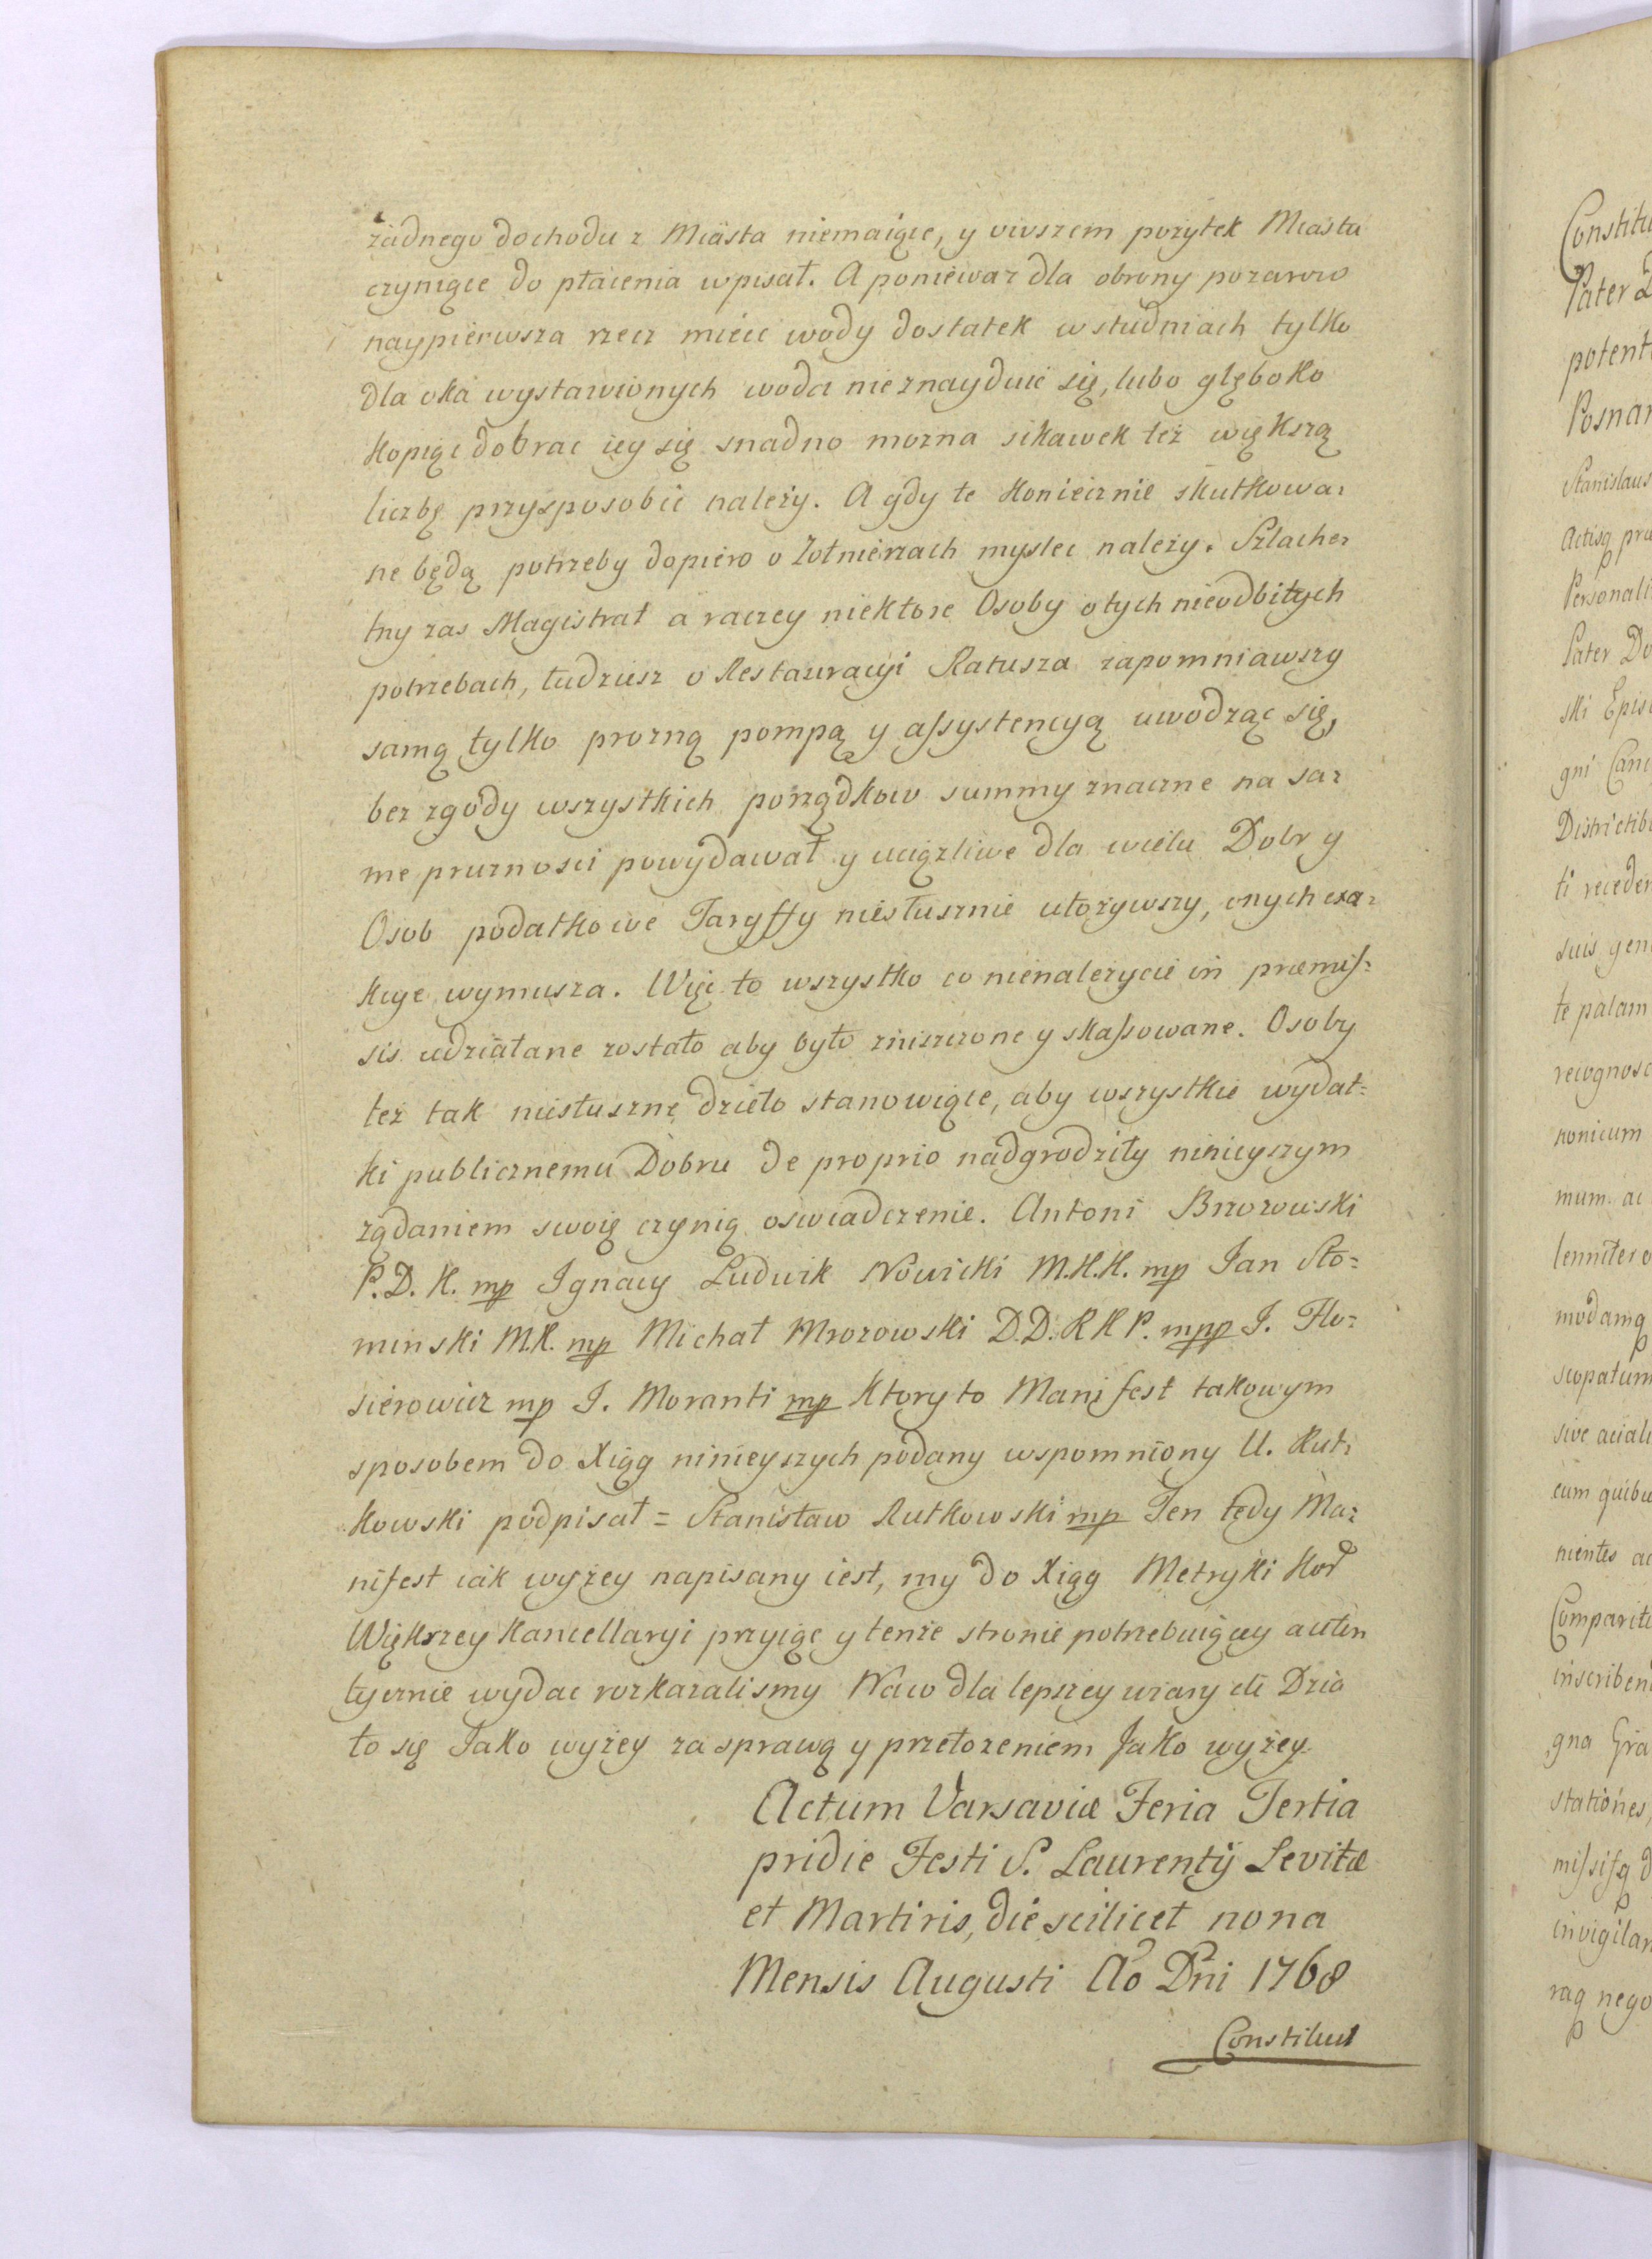 żadnego dochodu z Miasta niemaiące, y owszem pożytek Miastu
czyniące do płacenia wpisał. A poniewaz dla obrony pozarow
naypierwsza rzecz miec wody dostatek w studniach tylko
dla oka wystawionych woda nieznayduie się, lubo głęboko
kopiąc dobrac iey się snadno mozna sikawek też większą
liczbę przysposobic należy. A gdy te koniecznie skutkowa=
ne będą potrzeby dopiero o Żołnierzach myslec należy. Szlache=
tny zas Magistrat a raczey niektore Osoby o tych nieodbitych
potrzebach, tudziesz o Restauracyi Ratusza zapomniawszy
samą tylko prozną pompą y assystencyą uwodząc się,
bez zgody wszystkich porządkow summy znaczne na sa=
me prurnosci powydawał y uciązliwe dla wielu Dobr y
Osob podatkowe Taryffy niesłusznie ułożywszy, onych exa=
kcye wymusza. Więc to wszystko co nienależycie in præmis=
sis udziałane zostało aby było zniszczone y skassowane. Osoby
też tak niesłuszne dzieło stanowiące, aby wszystkie wydat=
ki publicznemu Dobru de proprio nadgrodziły ninieyszym
ządaniem swoię czynią oswiadczenie. Antoni Brzozowski
P.D.K. mp Ignacy Ludwik Nowicki M.K.K. mp Jan Sło=
minski M.K. mp Michał Mrozowski D.D.R K P. mpp J. Flo=
sierowicz mp J. Moranti mp Ktory to Manifest takowym
sposobem do Xiąg ninieyszych podany wspomniony U. Rut=
kowski podpisał = Stanisław Rutkowski mp Ten tedy Ma=
nifest iak wyżey napisany iest, my do Xiąg Metryki Kor
Większey Kancellaryi przyiąc y tenże stronie potrzebuiącey auten
tycznie wydac rozkazalismy Naco dla lepszey wiary etc Dzia
ło się Jako wyżey za sprawą y przełozeniem Jako wyżey.
Actum Varsaviæ Feria Tertia
pridie Festi S. Laurentÿ Levitæ
et Martiris, die scilicet nona
Mensis Augusti Ao Dni 1768
Constituti
Constitu
Pater D
potent
Posnan
Stanislaus
Actisq pra
Personali
Pater Do
ski Episc
gni Canc
Districtib
ti receden
suis gen
te palam
recognosc
nonicum
mum ac
lenniter
modamq
scopatum
sive aciali
cum quibu
nientes ac
Comparit
inscriben
gna Gra
stationes,
missisq d
invigilan
raq nego